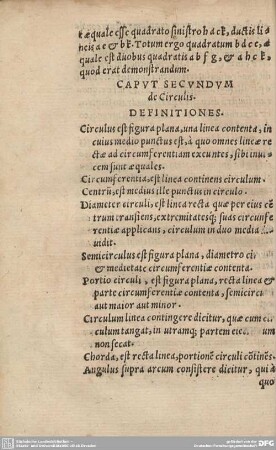 k æquale esse quadrato sinistro h a c k, ductis li
neis a e & b k. Totum ergo quadratum b d e c, æ
quale est duobus quadratis a b f g, & a h c k,
quod erat demonstrandum.
CAPVT SECVNDVM
de Circulis.
DEFINITIONES.
Circulus est figura plana, una linea contenta, in
cuius medio punctus est, à quo omnes lineæ re
ctæ ad circumferentiam exeuntes, sibi inui
cem sunt æquales.
Circumferentia, est linea continens circulum.
Centrū, est medius ille punctus in circulo.
Diameter circuli, est linea recta quæ per eius cē
trum transiens, extremitatesq; suas circumfe
rentiæ applicans, circulum in duo media
uidit.
Semicirculus est figura plana, diametro ci
& medietate circumferentiæ contenta.
Portio circuli, est figura plana, recta linea &
parte circumferentiæ contenta, semicircu
aut maior aut minor.
Circulum linea contingere dicitur, quæ cum ci
culum tangat, in utramq; partem eiec um
non secat.
Chorda, est recta linea, portionē circuli cōtinēs.
Angulus supra arcum consistere dicitur, qui à
quo